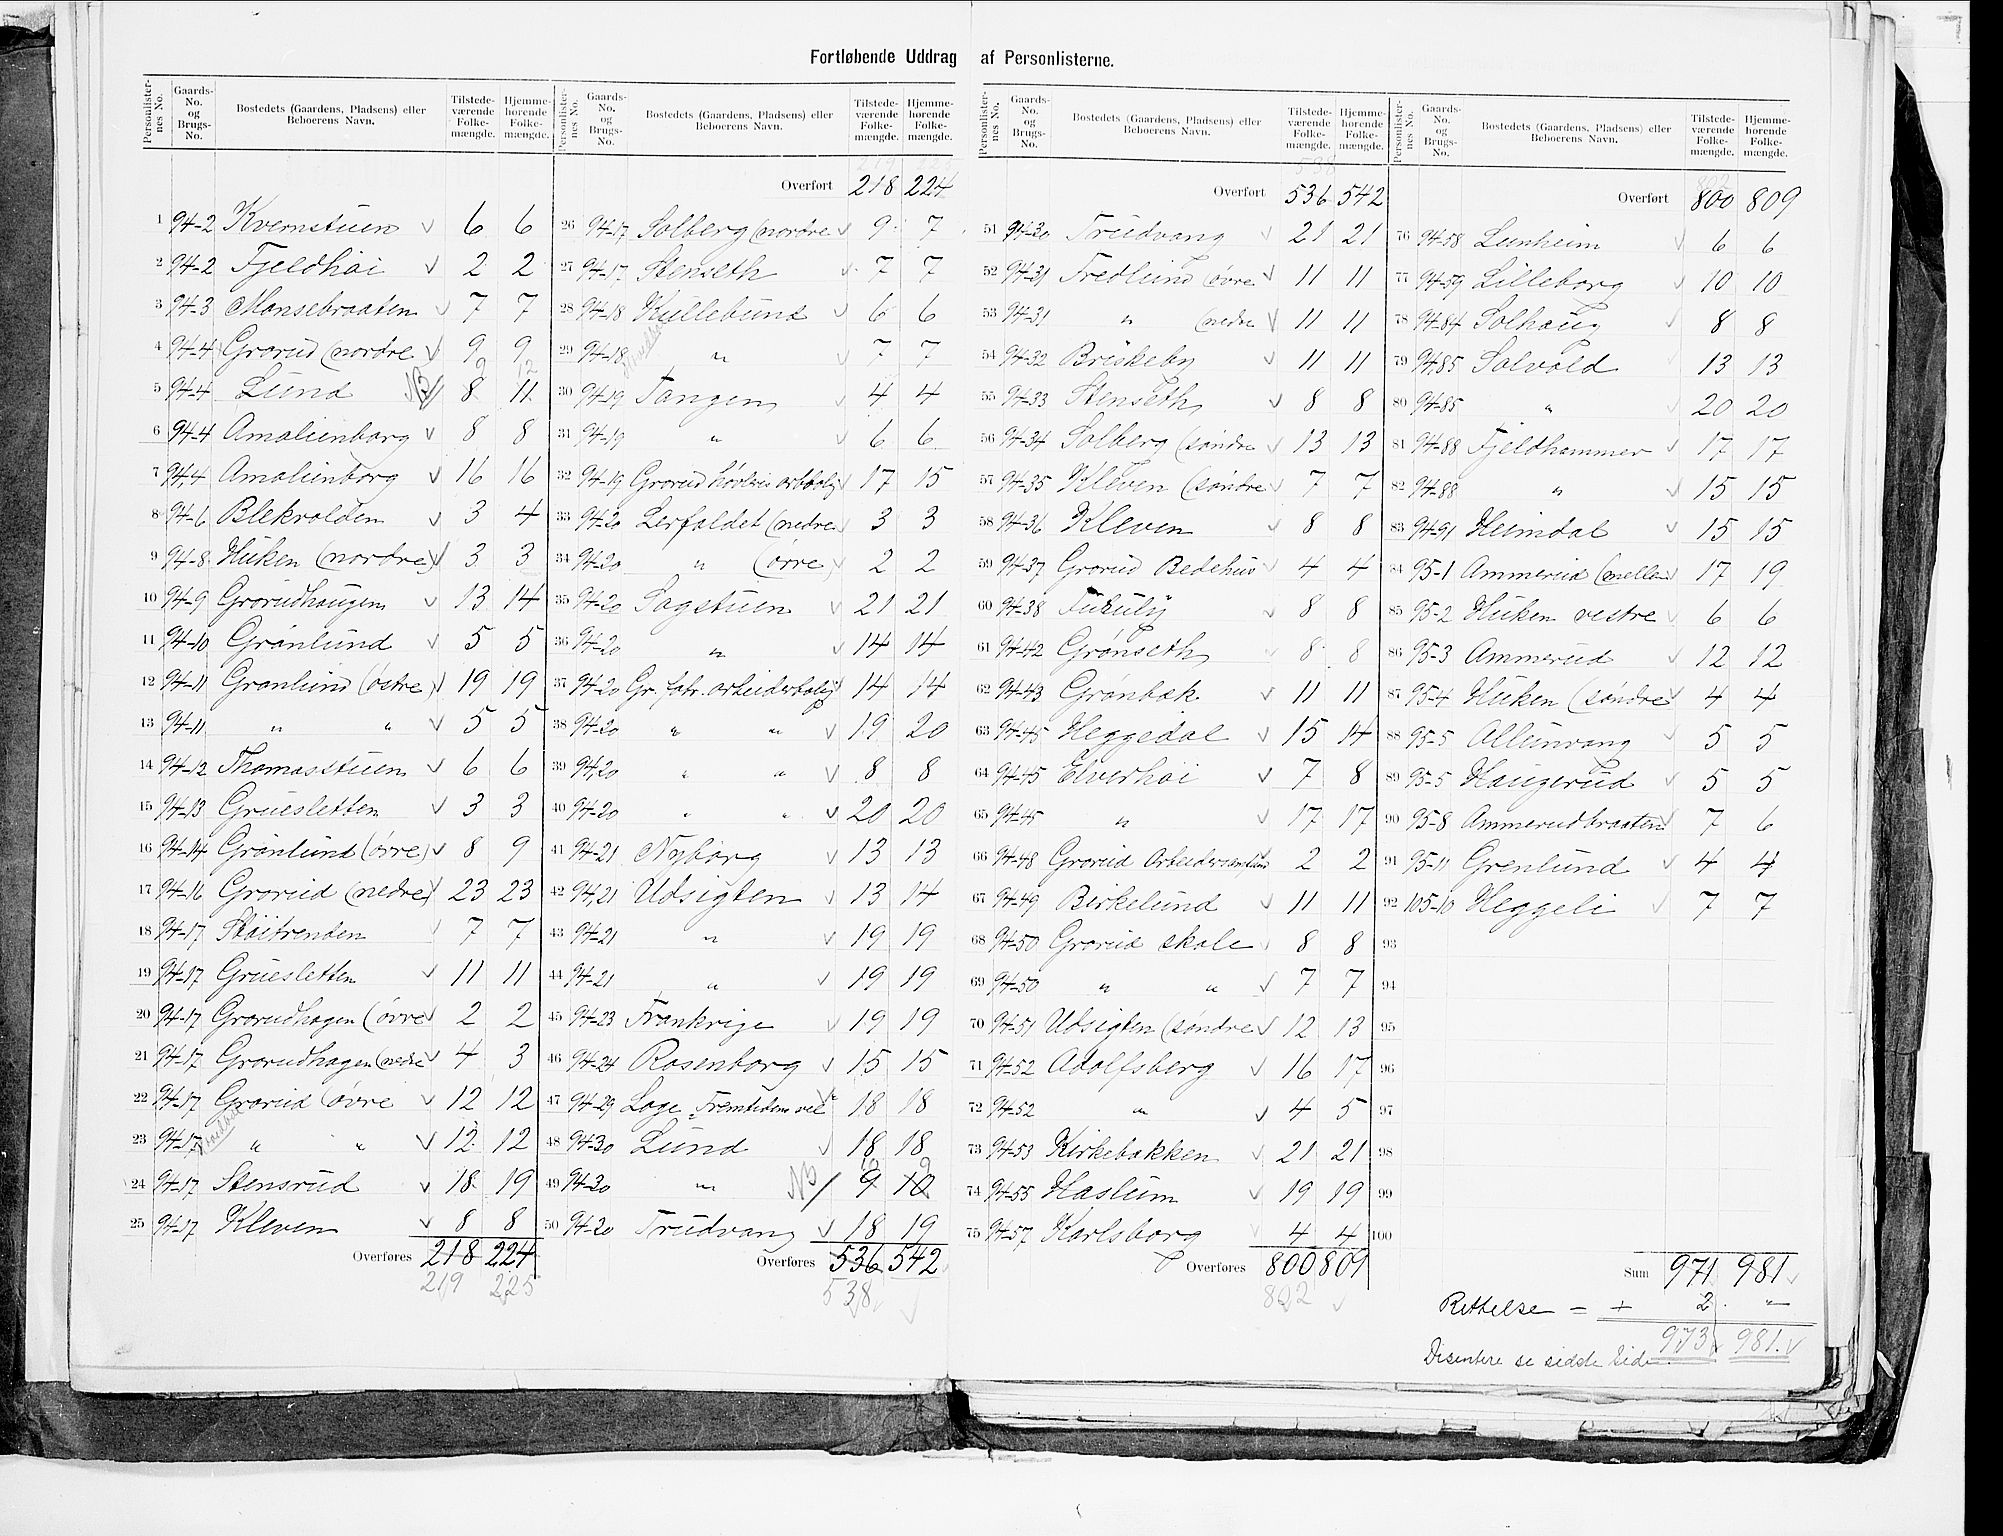 Fortløbende Uddrag af Personlisterne.
Personlisternes No. Gaards-No. og Brugs-No. Bostedets (Gaardens, Pladsens) eller Beboerens Navn. Tilstedeværende Folkemængde. Hjemmehørende Folkemængde.
1 94-2 Kvernstuen v 6 6
2 94-2 Fjeldhøi v 2 2
3 94-3 Monsebraaten v 7 7
4 94-4 Grorud (nordre v 9 9
5 94-4 Lund NB 8 11
6 94-4 Amalienborg v 8 8
7 94-4 Amalienborg v 16 16
8 94-6 Blekvolden v 3 4
9 94-8 Huken (nordre) v 3 3
10 94-9 Grorudhaugen v 13 14
11 94-10 Grønlund v 5 5
12 94-11 Grønlund (østre) v 19 19
13 94-11 " " v 5 5
14 94-12 Thomasstuen v 6 6
15 94-13 Gruesletten v 3 3
16 94-14 Grønlund (øvre) v 8 9
17 94-16 Grorud (nedre) v 23 23
18 94-17 Støitrenden v 7 7
19 94-17 Gruesletten v 11 11
20 94-17 Grorudhagen (øvre v 2 2
21 94-17 Grorudhagen (nedre v 4 3
22 94-17 Grorud øvre v 12 12
23 94-17 " " v 12 12
24 94-17 Stensrud v 18 19
25 94-17 Kleven v 8 8
Overføres 218 224
219 225
Personlisternes No. Gaards-No. og Brugs-No. Bostedets (Gaardens, Pladsens) eller Beboerens Navn. Tilstedeværende Folkemængde. Hjemmehørende Folkemængde.
Overført 218 224
26 94-17 Solberg (nordre v 9 7
27 94-17 Stenseth v 7 7
28 94-18 Kullebund v 6 6
29 94-18 " v 7 7
30 94-19 Tangen v 4 4
31 94-19 " v 6 6
32 94-19 Grorud høvleri arbbolig v 17 15
33 94-20 Lerfaldet (nedre v 3 3
34 94-20 " (øvre) v 2 2
35 94-20 Sagstuen v 21 21
36 94-20 " v 14 14
37 94-20 Gr. fabr. arbeiderbolig v 14 14
38 94-20 " " v 19 20
39 94-20 " " v 8 8
40 94-20 " " v 20 20
41 94-21 Nyborg v 13 13
42 94-21 Udsigten v 13 14
43 94-21 " v 19 19
44 94-21 " v 19 19
45 94-23 Frankrige v 19 19
46 94-24 Rosenborg v 15 15
47 94-29 Loge "Fremtidens vel" v 18 18
48 94-30 Lund v 18 18
49 94-30 " NB / 9 10
50 94-20 Trudvang v 18 19
Overføres 536 542
538
Personlisternes No. Gaards-No. og Brugs-No. Bostedets (Gaardens, Pladsens) eller Beboerens Navn. Tilstedeværende Folkemængde. Hjemmehørende Folkemængde.
538
Overført 536 542
51 94-30 Trudvang v 21 21
52 94-31 Fredlund øvre v 11 11
53 94-31 " (nedre v 11 11
54 94-32 Briskeby v 11 11
55 94-33 Stenseth v 8 8
56 94-34 Solberg (søndre v 13 13
57 94-35 Kleven (søndre v 7 7
58 94-36 Kleven v 8 8
59 94-37 Grorud Bedehus v 4 4
60 94-38 Furuly v 8 8
61 94-42 Grønseth v 8 8
62 94-43 Grønbæk v 11 11
63 94-45 Heggedal v 15 14
64 94-45 Elverhøi v 7 8
65 94-45 " v 17 17
66 94-48 Grorud Arbeidersamfund v 2 2
67 94-49 Birkelund v 11 11
68 94-50 Grorud skole v 8 8
69 94-50 " " v 7 7
70 94-51 Udsigten (søndre v 12 13
71 94-52 Adolfsberg v 16 17
72 94-52 " v 4 5
73 94-53 Kirkebakken v 21 21
74 94-55 Haslum v 19 19
75 94-57 Karlsborg v 4 4
Overføres 800 809
802
Personlisternes No. Gaards-No. og Brugs-No. Bostedets (Gaardens, Pladsens) eller Beboerens Navn. Tilstedeværende Folkemængde. Hjemmehørende Folkemængde.
802
Overført 800 809
76 94-58 Lunheim v 6 6
77 94-59 Lilleborg v 10 10
78 94-84 Solhaug v 8 8
79 94-85 Solvold v 13 13
80 94-85 " v 20 20
81 94-88 Fjeldhammer v 17 17
82 94-88 " v 15 15
83 94-91 Heimdal v 15 15
84 95-1 Ammerud (mellem 17 19
85 95-2 Huken vestre v 6 6
86 95-3 Ammerud v 12 12
87 95-4 Huken (søndre v 4 4
88 95-5 Alleunvang v 5 5
89 95-5 Haugerud v 5 5
90 95-8 Ammerudbraaten v 7 6
91 95-11 Grenlund v 4 4
92 105-10 Heggeli v 7 7
93
94
95
96
97
98
99
100
Sum 971 981 v
Rettelse = + 2 "
973 v 981. v
Disentere se sidste Side